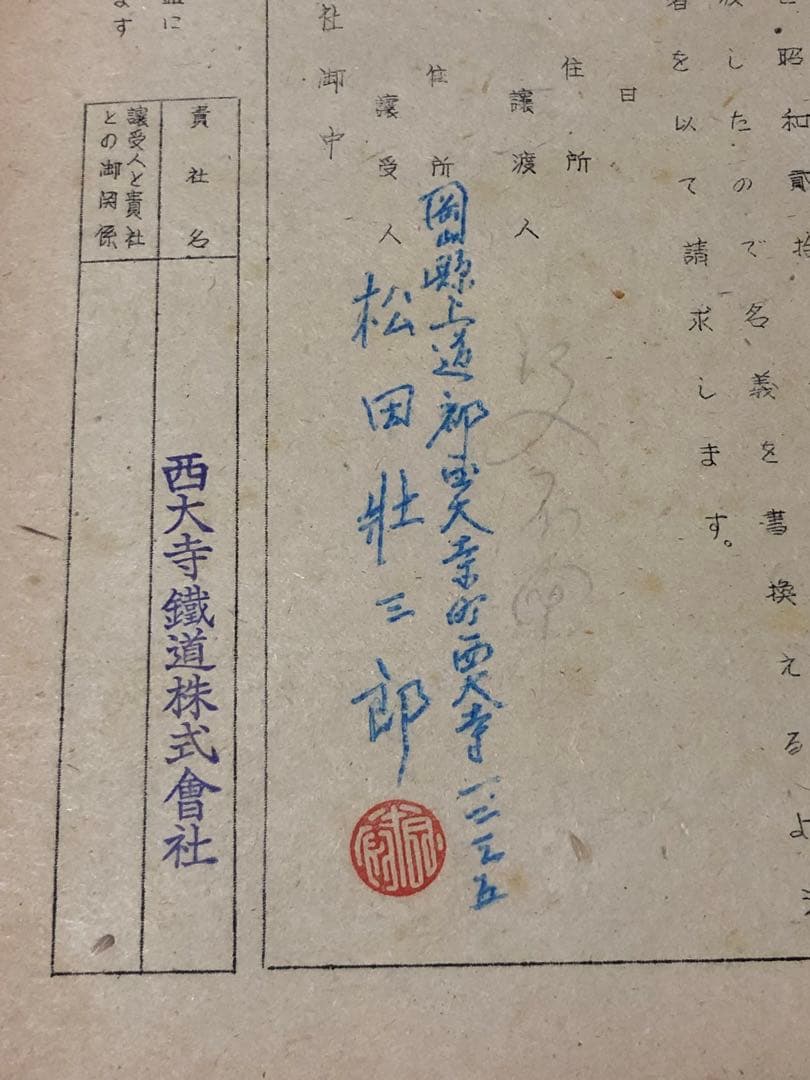 昭和貳拾
したので名義を書換えるよ
を以て請求します。
日
住所
譲渡人
住所 岡山縣上道郡西大寺町西大寺一二三五
譲受人 松田壯三郎
社御中
貴社名 西大寺鐵道株式會社
譲受人と貴社
との御関係
に
ます